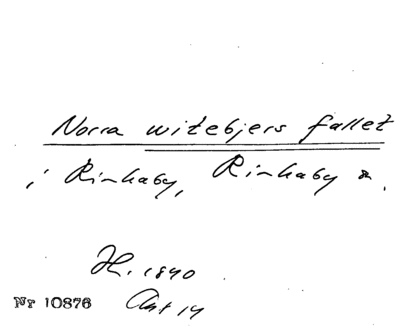 Norra witebjers fallet
i Rinkaby, Rinkaby
H. 1840
Nr 10876 Akt 14